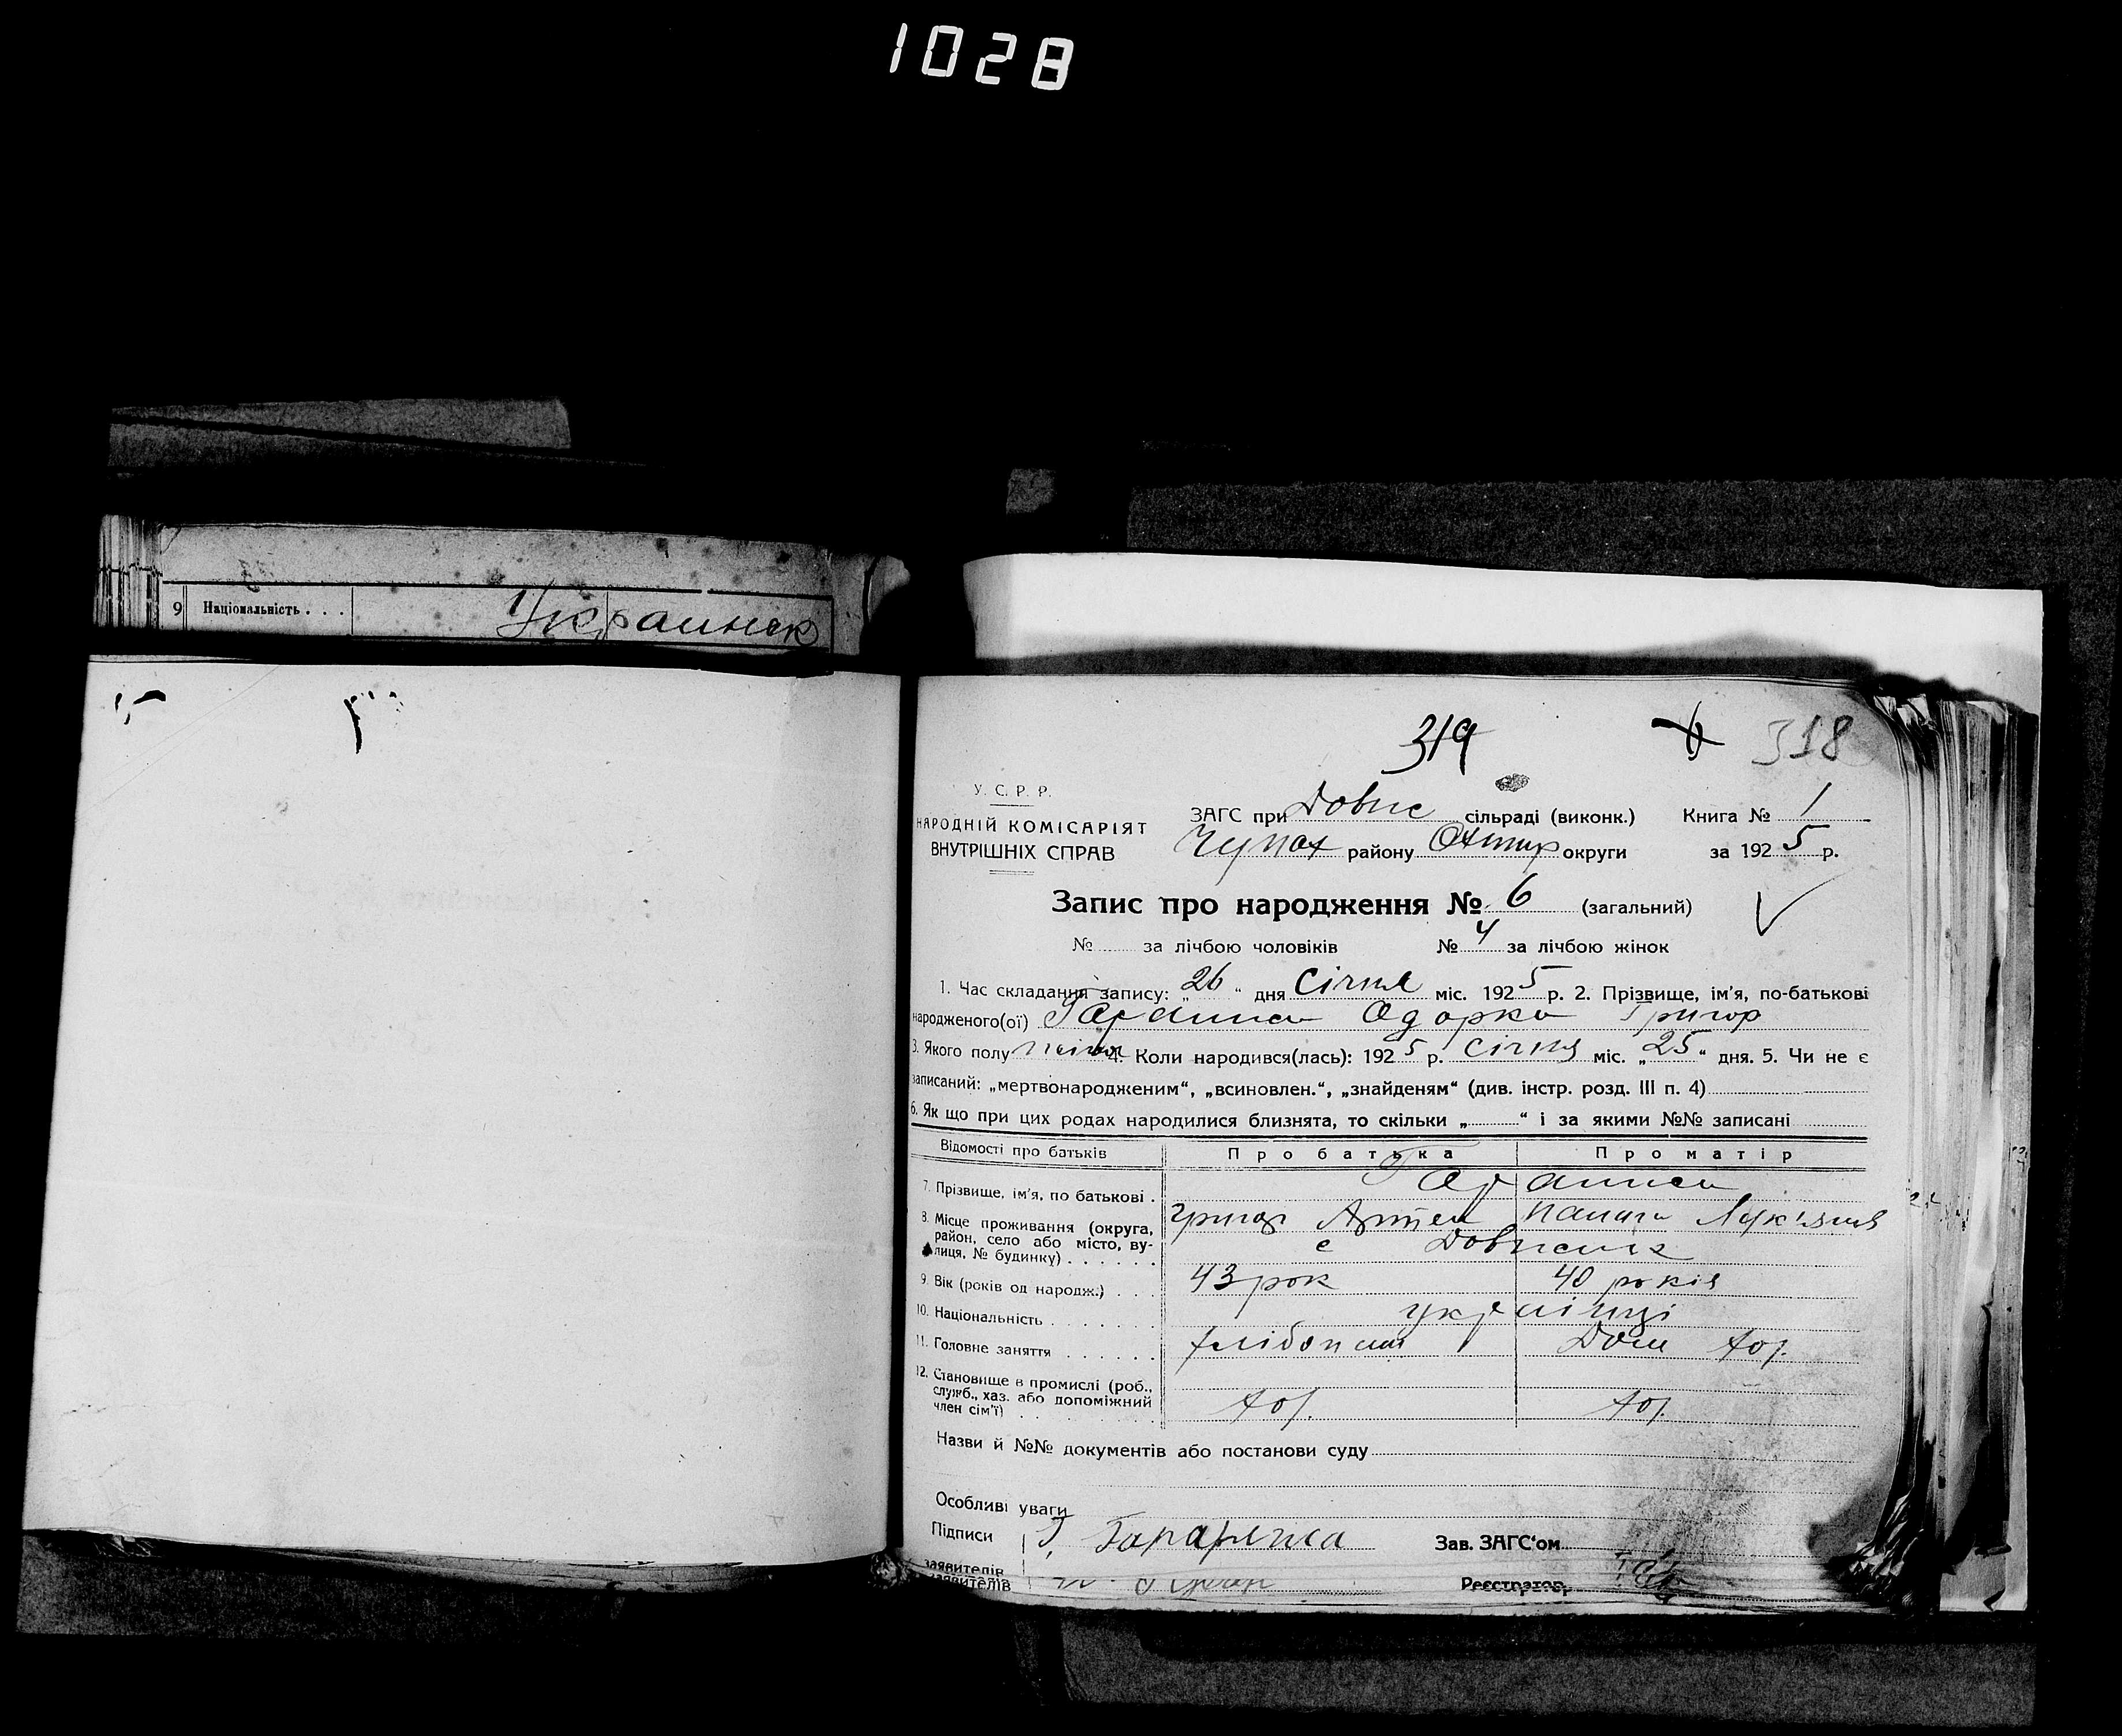 1028
9 Національність . . .
Украинск
319
318
У. С. Р. Р.
НАРОДНІЙ КОМІСАРІЯТ
ВНУТРІШНІХ СПРАВ
ЗАГС при Довж сільраді (виконк.) Книга № 1
Чупах району Охтир округи за 1925 р.
Запис про народження № 6 (загальний)
№ за лічбою чоловіків № 4 за лічбою жінок
1. Час складання запису: „26“ дня Січня міс. 1925 р. 2. Прізвище, ім'я, по-батькові
народженого(ої) Одарка Григор
3. Якого полу жіноч 4. Коли народився(лась): 1925 р. Січня міс. „25“ дня. 5. Чи не є
записаний: „мертвонародженим“, „всиновлен.“, „знайденям“ (див. інстр. розд. III п. 4)
6. Як що при цих родах народилися близнята, то скільки „ “ і за якими №№ записані
Відомості про батьків Про батька Про матір
7. Прізвище, ім'я, по батькові .
Григор Артем Лук'янів
8. Місце проживання (округа,
район, село або місто, ву-
лиця, № будинку) . . . . . .
с Довжик
9. Вік (років од народж.) . . . 43 рок 40 років
10. Національність . . . . . . . українці
11. Головне заняття . . . . . . хлібопаш Дом хоз.
12. Становище в промислі (роб.,
служб., хаз. або допоміжний
член сім'ї) . . . . . . . хоз. хоз.
Назви й №№ документів або постанови суду
Особливі уваги
Підписи Г. Зав. ЗАГС‘ом
заявителів
заявителів Реєстратор